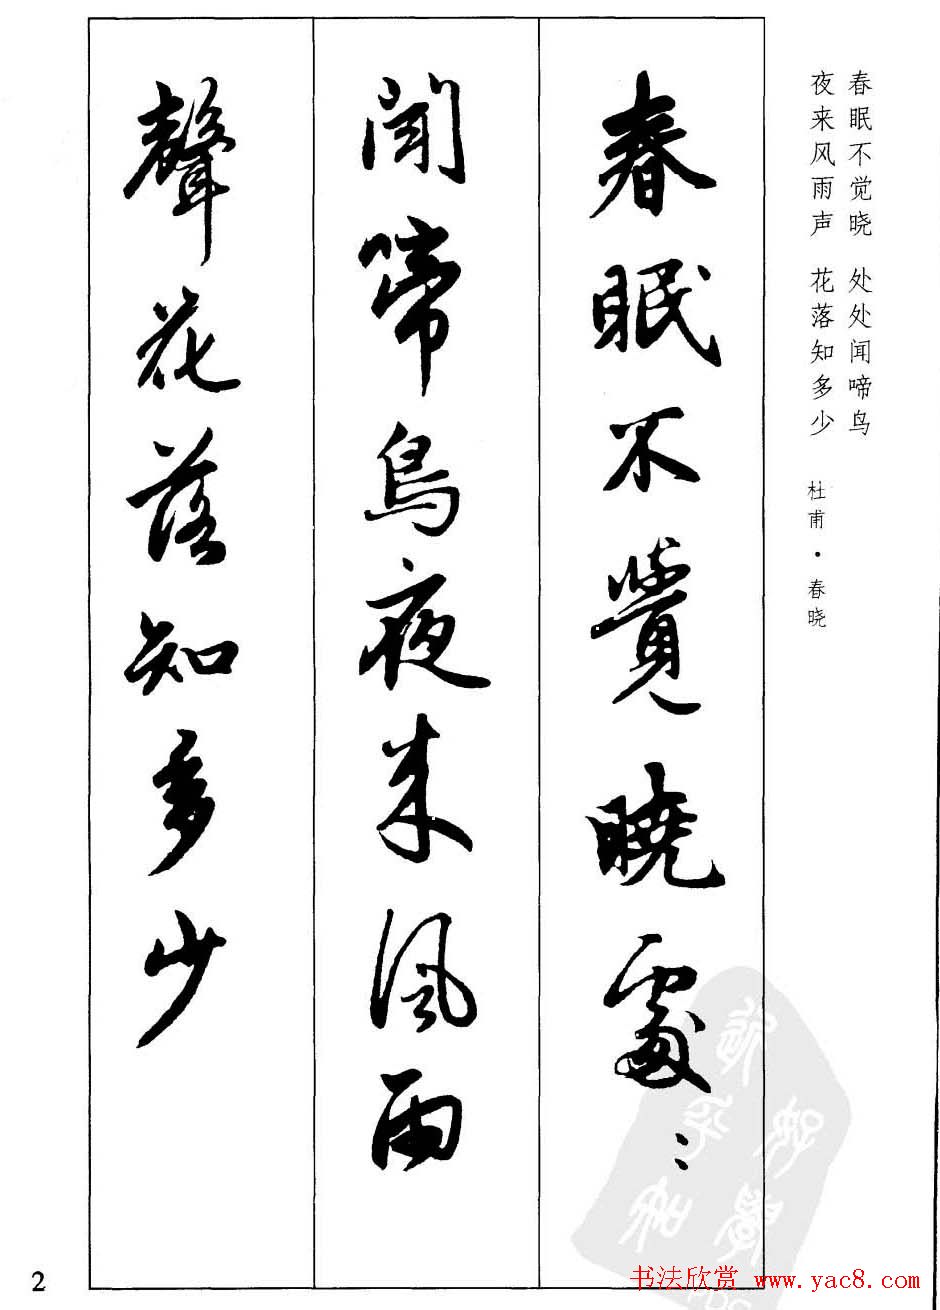 春眠不觉晓 处处闻啼鸟
夜来风雨声 花落知多少
杜甫·春晓
春眠不覺曉處〻
聞啼鳥夜来風雨
聲花落知多少
2
书法欣赏 www.yac8.com